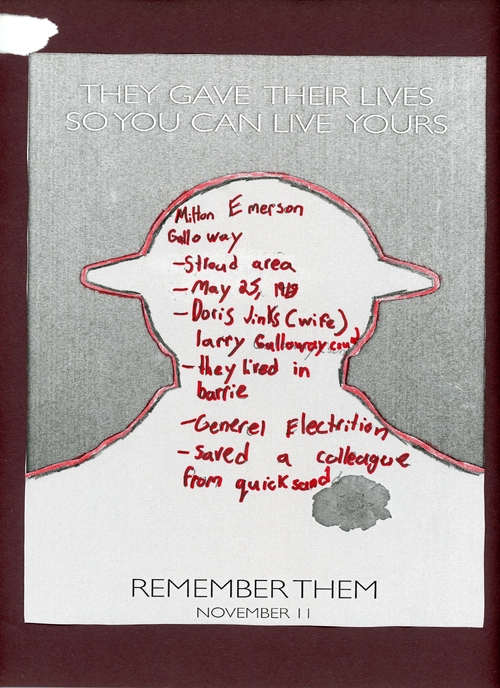 THEY GAVE THEIR LIVES
SO YOU CAN LIVE YOURS
Milton Emerson
Galloway
-Stroud area
- May 25,
- Doris Jinks (wife)
larry Galloway
- they lived in
barrie
-Generel Electrition
- saved a colleague
from quicksand
REMEMBER THEM
NOVEMBER 11